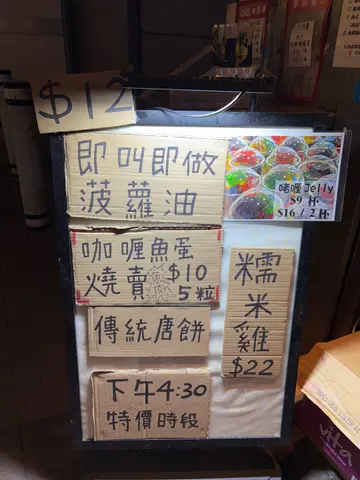 $12
即叫即做
菠蘿油
啫喱Jelly
$9 杯
$16/2杯
咖喱魚蛋
燒賣 $10
5粒
糯米雞
$22
傳統唐餅
下午4:30
特價時段
vita